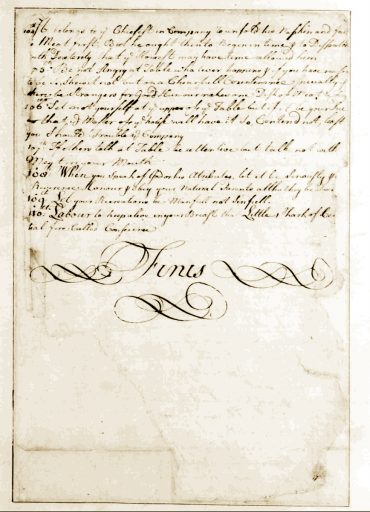 belongs to ye Chiefest in Company to unfold his Napkin and fall
to Meat first, But he ought then to Begin in time & to Dispatch
with Dexterity that ye Slowest may have time allowed him
Be not Angry at Table whatever happens & if you have reason
to be so, Shew it not but on a Chearfull Countenance especially
if there be Strangers for Good Humour makes one Dish of Meat a
106th Set not yourself at ye upper of ye Table but if it Be your Due
or that ye Master of ye house will have it So, Contend not, least
you Should Trouble ye Company
107th If others talk at Table be attentive but talk not with
Meat in your Mouth
108th When you Speak of God or his Atributes, let it be Seriously &
Reverence Honour & Obey your Natural Parents altho they be Poor
109th Let your Recreations be Manfull not Sinfull
110th Labour to keep alive in your Breast that Little Spark of Ce
tial fire Called Conscience
Finis